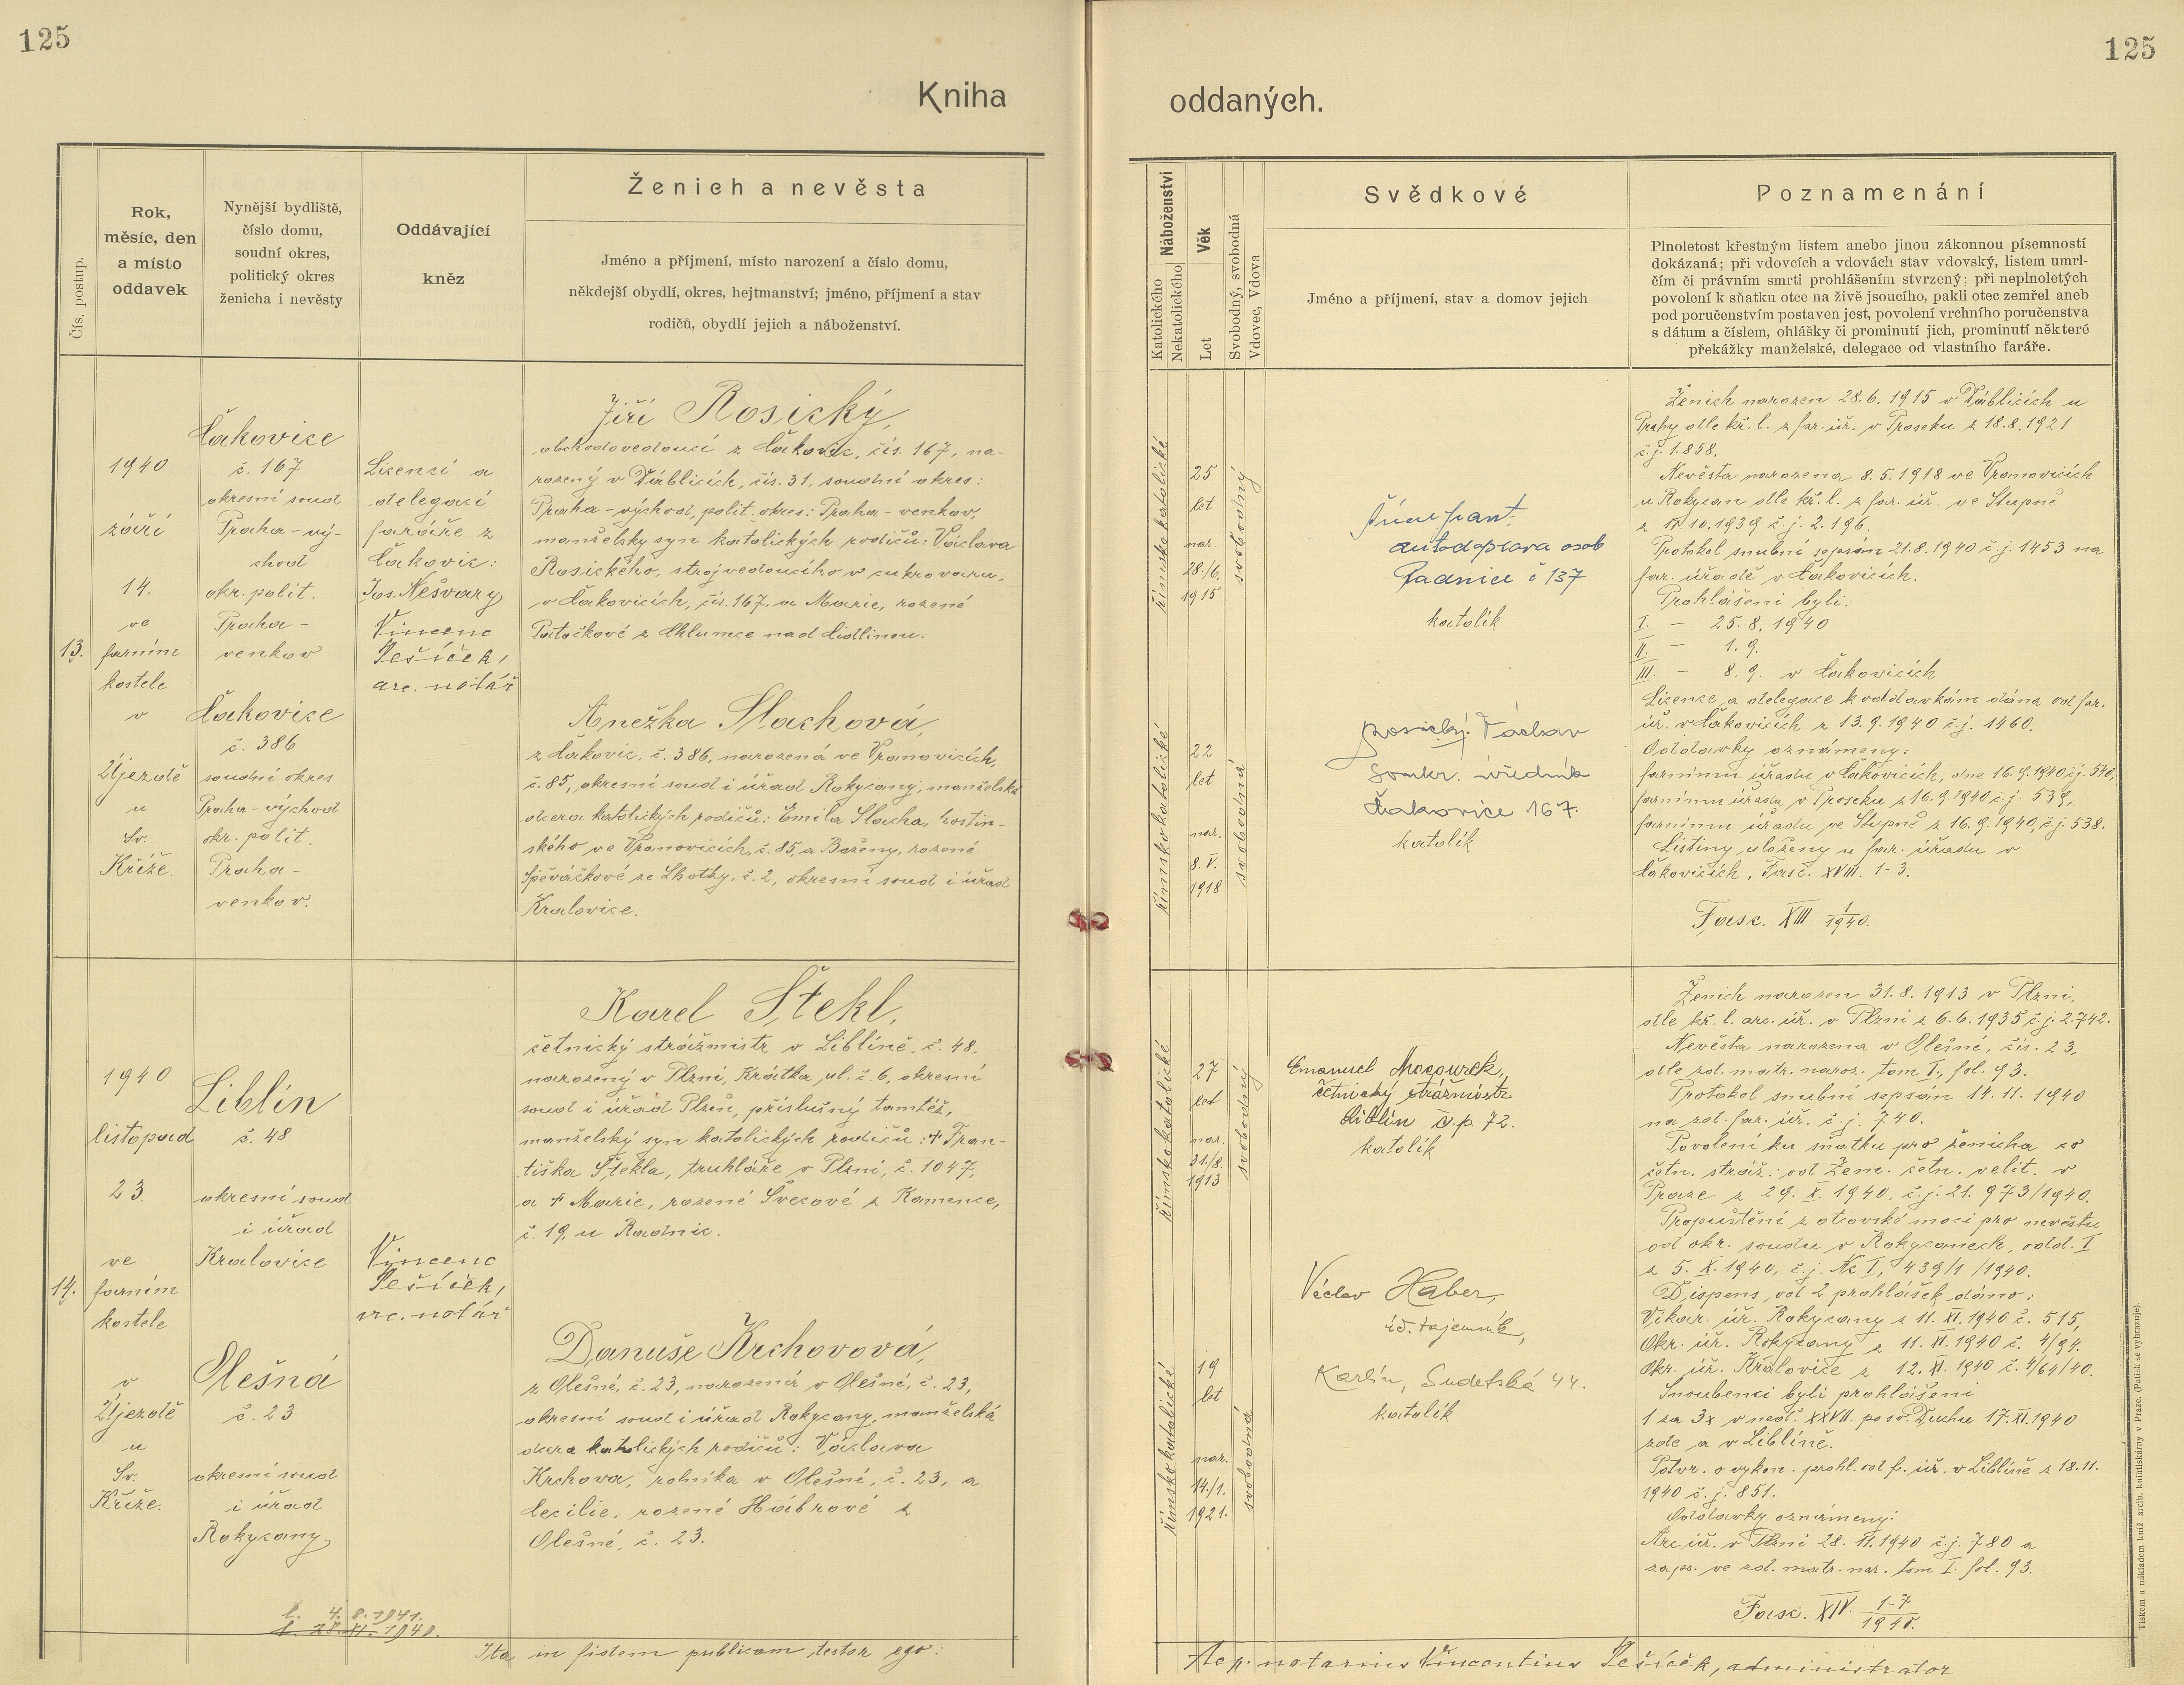 125
125
Kniha
oddaných.
Čís. postup.
Rok,
měsíc, den
a místo
oddavek
Nynější bydliště,
číslo domu,
soudní okres,
politický okres
ženicha i nevěsty
Oddávající
kněz
Ženich a nevěsta
Jméno a příjmení, místo narození a číslo domu,
někdejší obydlí, okres, hejtmanství; jméno, příjmení a stav
rodičů, obydlí jejich a náboženství.
Náboženství
Katolického
Nekatolického
Věk
Let
Svobodný, svobodná
Vdovec, Vdova
Svědkové
Jméno a příjmení, stav a domov jejich
Poznamenání
Plnoletost křestným listem anebo jinou zákonnou písemností
dokázaná; při vdovcích a vdovách stav vdovský, listem umrl-
čím či právním smrti prohlášením stvrzený; při neplnoletých
povolení k sňatku otce na živě jsoucího, pakli otec zemřel aneb
pod poručenstvím postaven jest, povolení vrchního poručenstva
s dátum a číslem, ohlášky či prominutí jich, prominutí některé
překážky manželské, delegace od vlastního faráře.
13.
1940
září
14.
ve
farním
kostele
v
Újezdě
u
Sv.
Kříže.
Čakovice
č. 167
okresní soud
Praha-vý-
chod
okr. polit.
Praha-
venkov
Čakovice
č. 386
soudní okres
Praha-východ
okr. polit.
Praha-
venkov.
Licencí a
delegací
faráře z
Čakovic:
Jos. Nešvary
Vincenc
Pešíček,
arc. notář
Jiří Rosický,
obchodvedoucí z Čakovic, čís. 167, na-
rozený v Ďáblicích, čís. 31, soudní okres:
Praha-východ, polit. okres: Praha-venkov,
manželský syn katolických rodičů: Václava
Rosického, strojvedoucího v cukrovaru,
v Čakovicích, čís. 167, a Marie, rozené
Patočkové z Chlumce nad Cidlinou.
Anežka Slachová,
z Čakovic, č. 386, narozená ve Vranovicích,
č. 85, okresní soud i úřad Rokycany, manželská
dcera katolických rodičů: Emila Slacha, hostin-
ského ve Vranovicích, č. 85, a Boženy, rozené
Spěváčkové ze Lhotky, č. 2, okresní soud i úřad
Kralovice.
římskokatolické
25
let
nar.
28./6.
1915
svobodný
římskokatolické
22
let
nar.
8. V.
1918
svobodná
autodoprava osob
Radnice č 137
katolík
Rosický Václav
soukr. úředník
Čakovice 167.
katolík
Ženich narozen 28.6.1915 v Ďáblicích u
Prahy dle kř. l. z far. úř. v Proseku z 18.8.1921
č.j. 1.858.
Nevěsta narozena 8.5.1918 ve Vranovicích
u Rokycan dle kř. l. z far. úř. ve Stupně
10.1939 č.j. 2.196.
Protokol snubní sepsán 21.8.1940 č.j. 1453 na
far. úřadě v Čakovicích.
Prohlášeni byli:
I. – 25.8.1940
II. – 1.9.
III. – 8.9. v Čakovicích
Licence a delegace k oddavkám dána od far.
úř. v Čakovicích z 13.9.1940 č.j. 1460.
Oddavky oznámeny:
farnímu úřadu v Čakovicích, dne 16.9.1940 č.j. 540,
farnímu úřadu v Proseku z 16.9.1940 č.j. 539,
farnímu úřadu ve Stupně z 16.9.1940, č.j. 538.
Listiny uloženy u far. úřadu v
Čakovicích, Fasc. XVIII. 1-3.
Fasc. XIII 1/1940.
14.
1940
listopad
23.
ve
farním
kostele
v
Újezdě
u
Sv.
Kříže.
Liblín
č. 48
okresní soud
i úřad
Kralovice
Olešná
č. 23
okresní soud
i úřad
Rokycany
Vincenc
Pešíček,
arc. notář
Karel Štekl,
četnický strážmistr v Liblíně, č. 48,
narozený v Plzni, Krátká ul. č. 6, okresní
soud i úřad Plzeň, příslušný tamtéž,
manželský syn katolických rodičů: + Fran-
tiška Štekla, truhláře v Plzni, č. 1047,
a + Marie, rozené Švecové z Kamence,
č. 19, u Radnic.
Danuše Krchovová,
z Olešné, č. 23, narozená v Olešné, č. 23,
okresní soud i úřad Rokycany, manželská
dcera katolických rodičů: Václava
Krchova, rolníka v Olešné, č. 23, a
Cecilie, rozené Hábrové z
Olešné, č. 23.
římskokatolické
27
let
nar.
31./8.
1913
svobodný
římskokatolické
19
let
nar.
14./1.
1921.
svobodná
Emanuel Mocourek,
četnický strážmistr
Liblín č.p. 72.
katolík
Václav Haber,
úř. tajemník,
Karlín, Sudetská 44.
katolík
Ženich narozen 31.8.1913 v Plzni,
dle kř. l. arc. úř. v Plzni z 6.6.1935 č.j. 2.742.
Nevěsta narozena v Olešné, čís. 23,
dle zd. matr. naroz. tom I., fol. 93.
Protokol snubní sepsán 14.11.1940
na zd. far. úř. č.j. 740.
Povolení ku sňatku pro ženicha co
četn. stráž.: od Zem. četn. velit. v
Praze z 29. X. 1940, č.j. 21.973/1940.
Propuštění z otcovské moci pro nevěstu
od okr. soudu v Rokycanech, odd. I
z 5. X. 1940, č.j. Nc I, 439/1 /1940.
Dispens od 2 prohlášek dáno:
Vikar. úř. Rokycany z 11. XI. 1940 č. 515,
Okr. úř. Rokycany z 11. XI. 1940 č. 4/94.
Okr. úř. Kralovice z 12. XI. 1940 č. 4/64/40.
Snoubenci byli prohlášeni
1 za 3x v ned. XXVII. po sv. Duchu 17. XI. 1940
zde a v Liblíně.
Potvr. o vykon. prohl. od f. úř. v Liblíně z 18.11.
1940 č.j. 851.
Oddavky oznámeny:
Arc. úř. v Plzni 28. 11. 1940 č.j. 780 a
zaps. ve zd. matr. nar. tom I. fol. 93.
Fasc. XIV. 1-7/1940.
l. 4. 8. 1941.
l. 28. XI. 1940.
Ita in fidem publicam testor ego:
notarius Vincentius Pešíček, administrator
Tiskem a nákladem kníž. arcib. knihtiskárny v Praze. (Patisk se vyhrazuje).